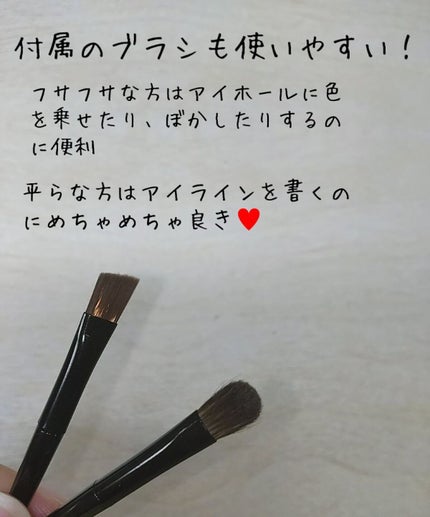 付属のブラシも使いやすい！
フサフサな方はアイホールに色
を乗せたり、ぼかしたりするの
に便利
平らな方はアイラインを書くの
にめちゃめちゃ良き♥